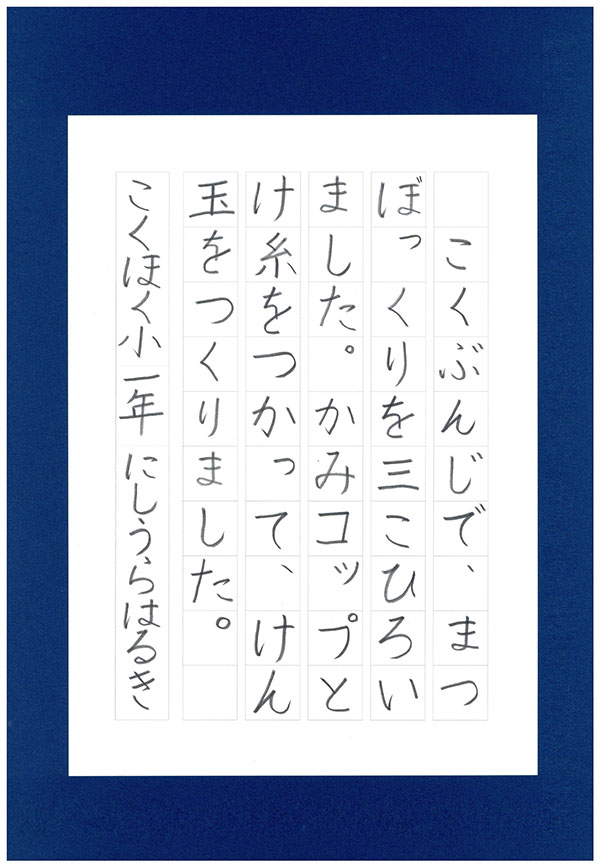 こくぶんじで、まつ
ぼっくりを三こひろい
ました。かみコップと
け糸をつかって、けん
玉をつくりました。
こくほく小一年 にしうらはるき